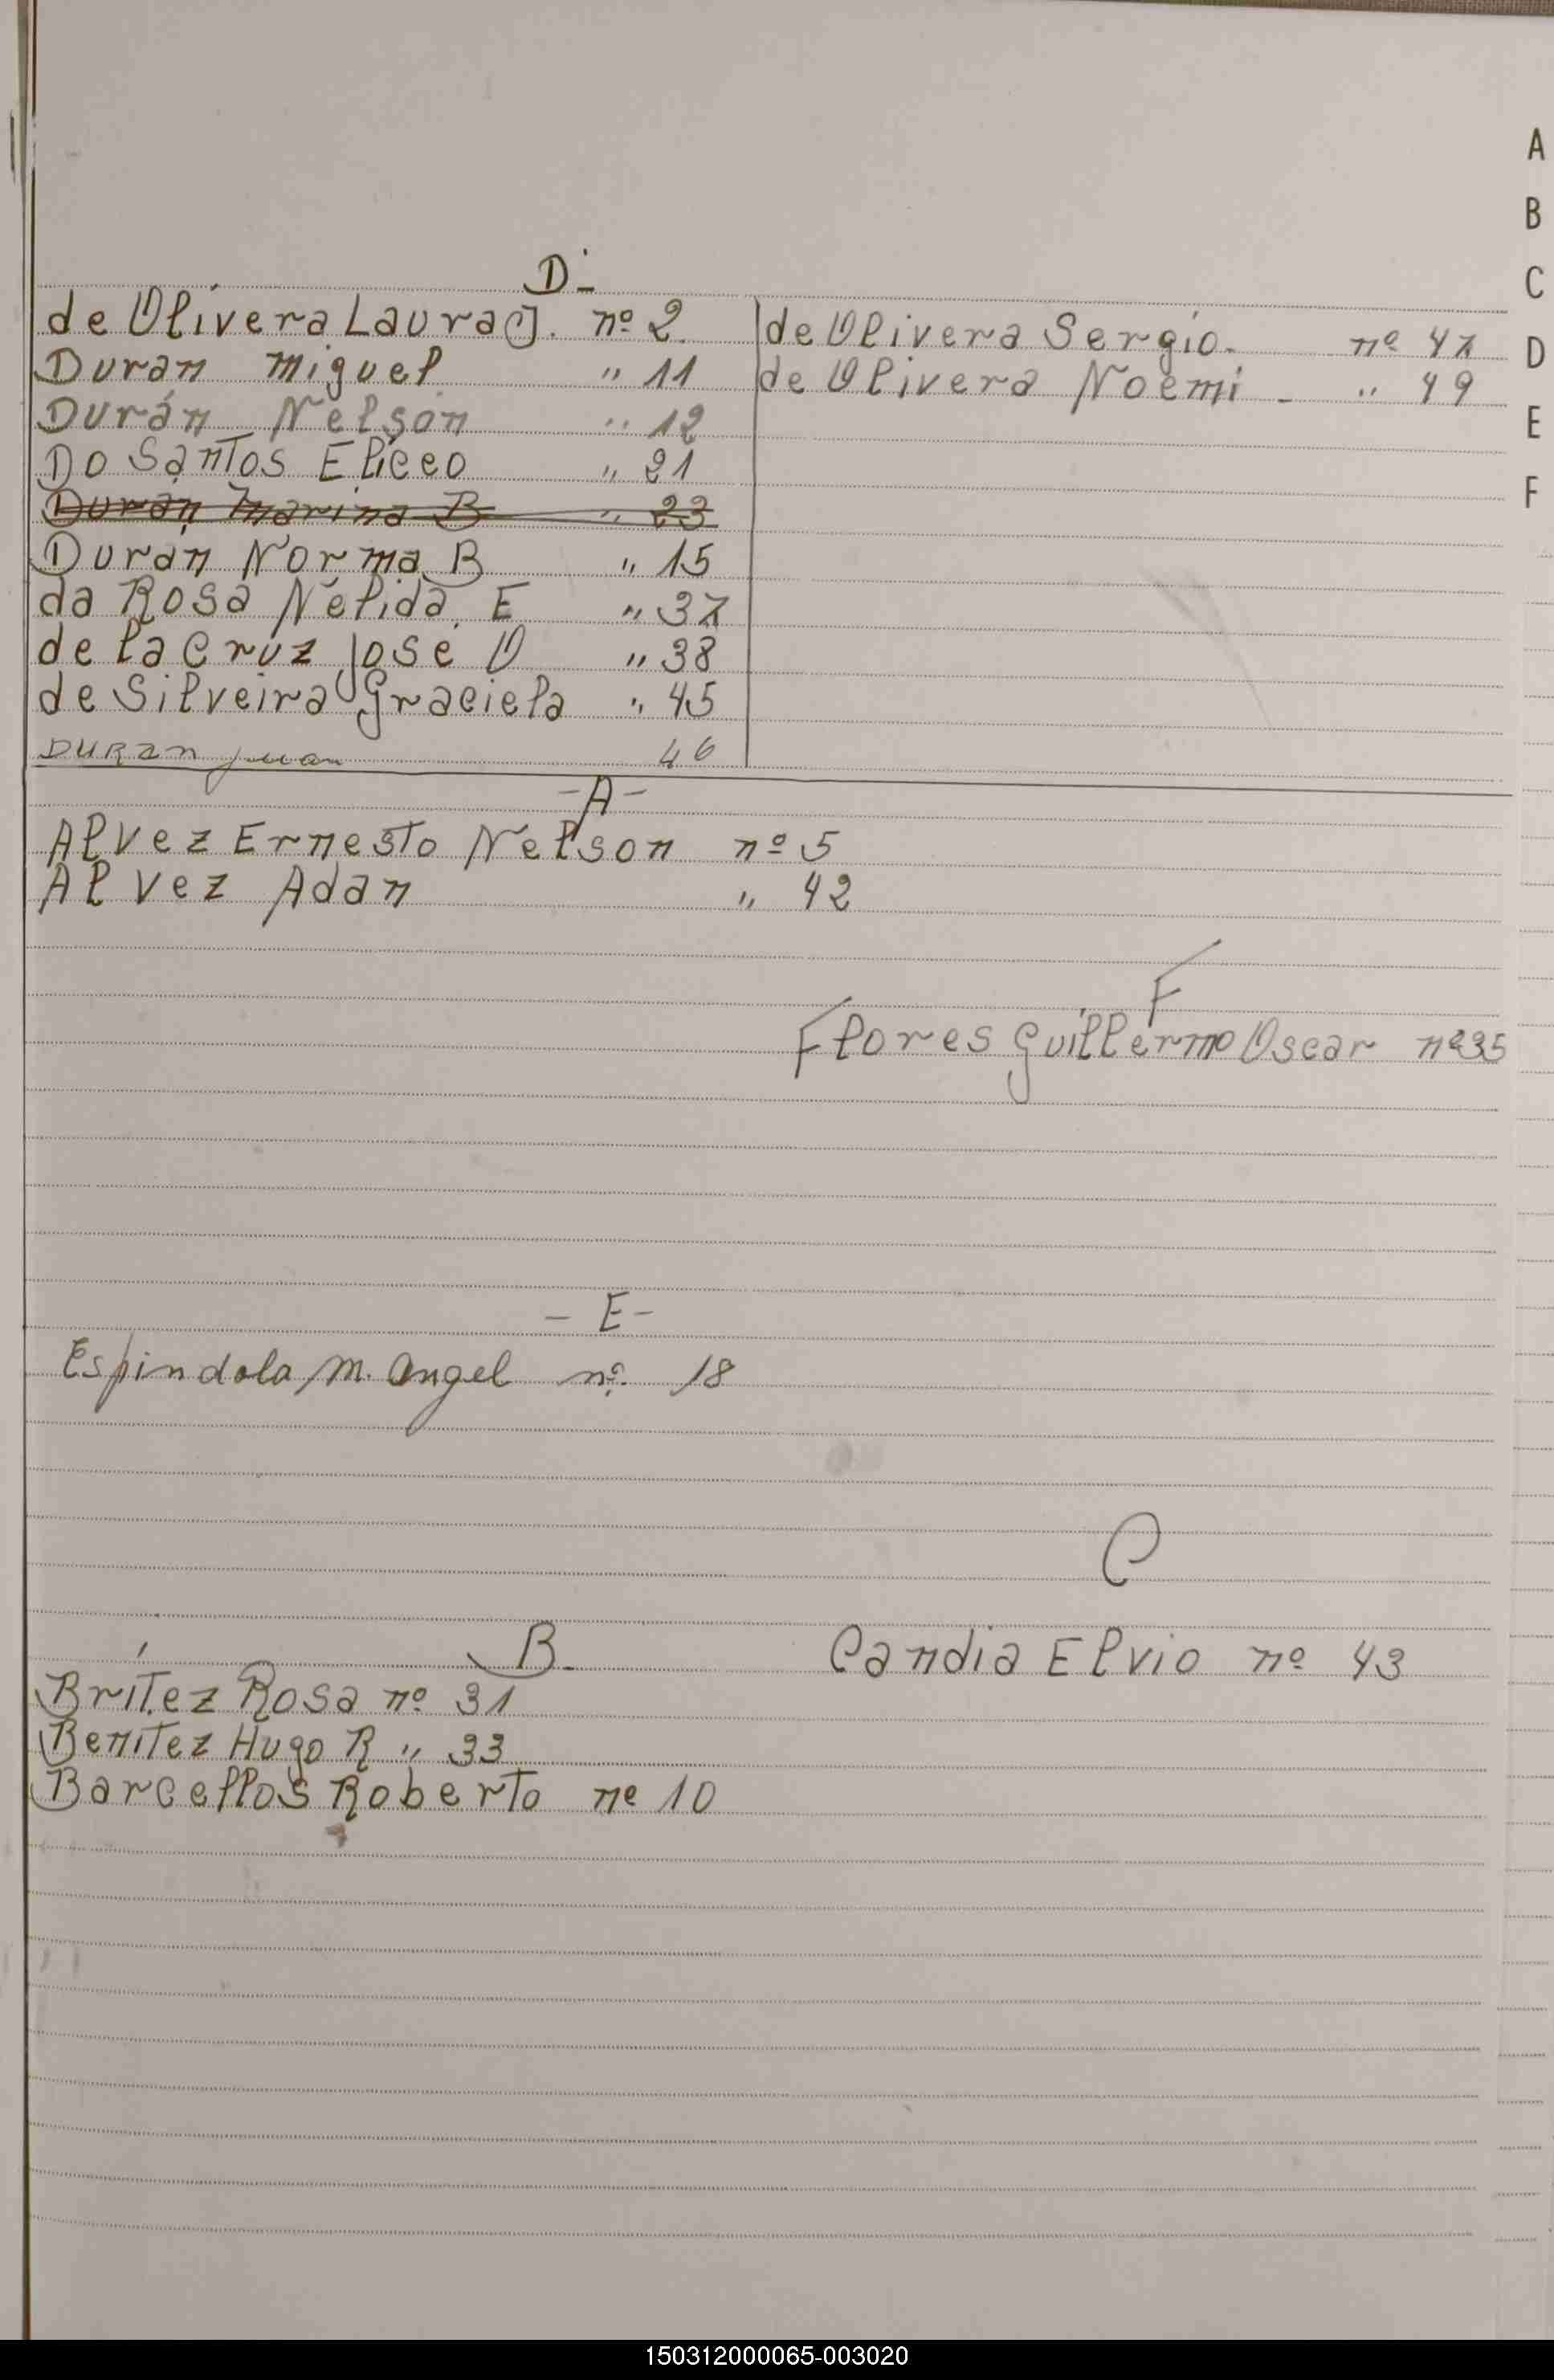 D.-
de Olivera Laura J. nº 2.
Duran Miguel " 11
Durán Nelson " 12
Do Santos Eliceo " 21
Duran Marina B " 23
Duran Norma B " 15
da Rosa Nélida. E " 37
de la Cruz José O " 38
de Silveira Graciela " 45
DURAN Juan 46
de Olivera Sergio. nº 47
de Olivera Noemi - " 49
-A-
Alvez Ernesto Nelson nº 5
Alvez Adan " 42
F
Flores Guillermo Oscar nº 35
- E -
Espindola M. Angel nº. 18
C
Candia Elvio nº 43
B.
Brítez Rosa nº 31
Benitez Hugo R " 33
Barcellos Roberto nº 10
A
B
C
D
E
F
150312000065-003020